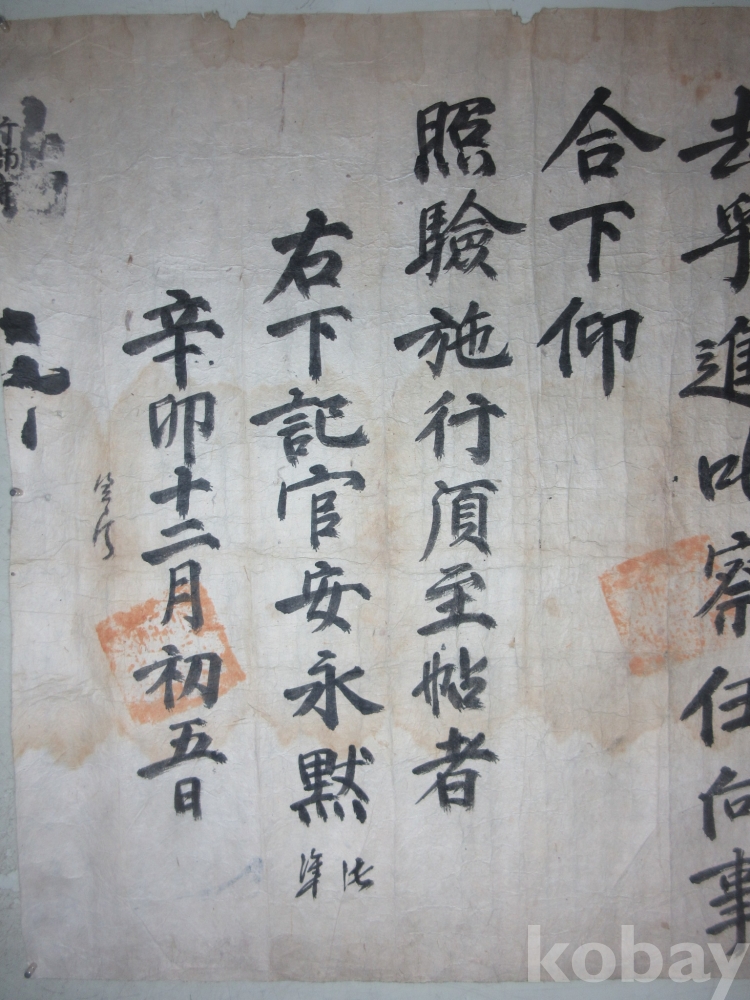 去乎進叱察任向事
合下仰
照驗施行須至帖者
右下記官安永默
準
辛卯十二月初五日
kobay